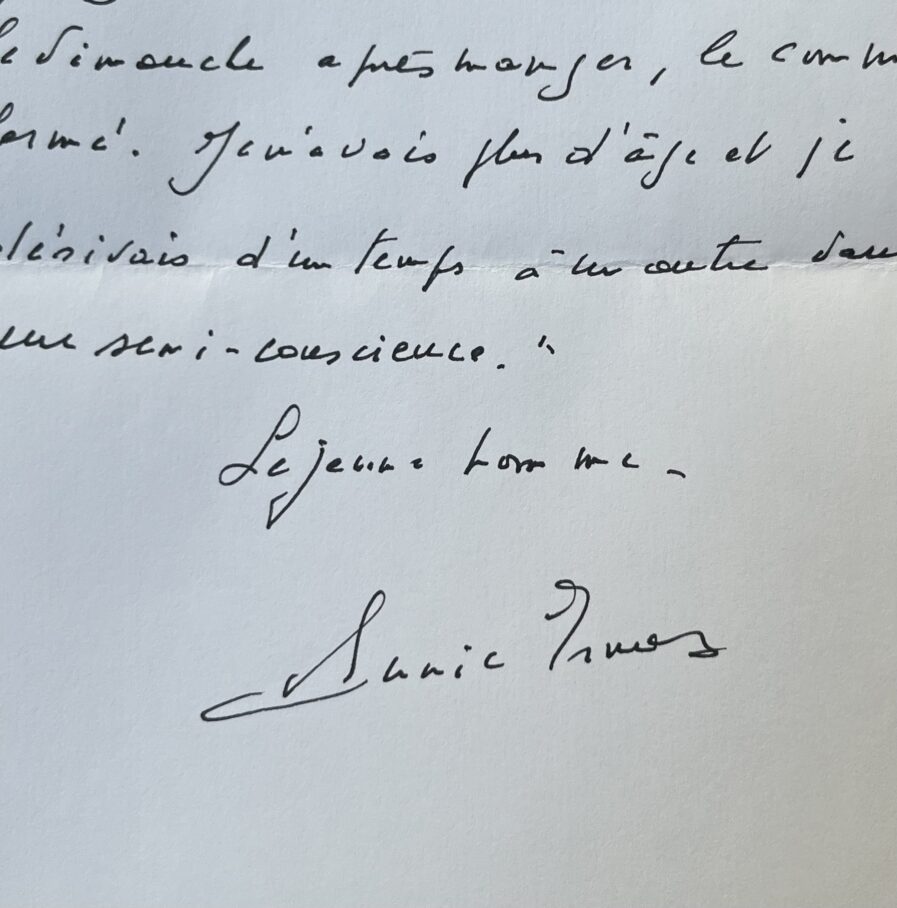 le dimanche après manger, le comm
fermé. Je n'avais plus d'âge et je
dérivais d'un temps à un autre dans
une semi-conscience."
Le jeune homme.
Annie Ernaux